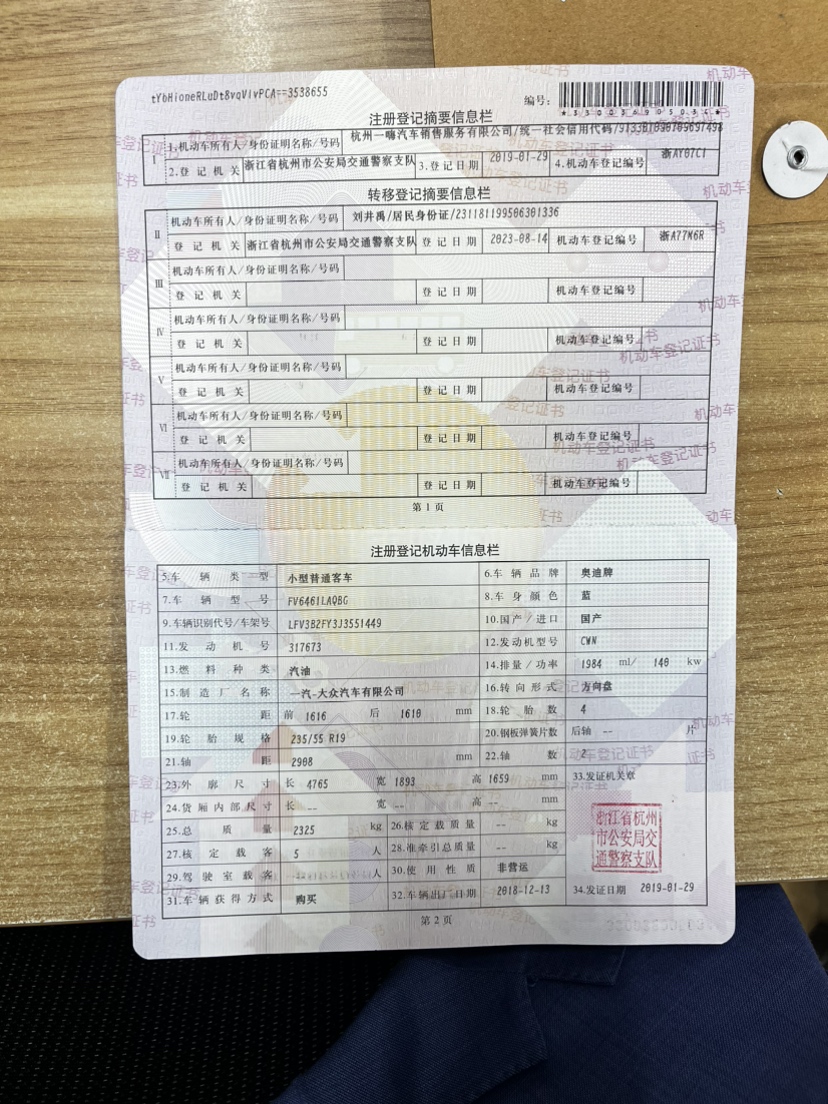 tYbHiomeRLuDt8vqVlvPCA==3538655
编号:
注册登记摘要信息栏
I 1.机动车所有人/身份证明名称/号码 杭州一嗨汽车销售服务有限公司/统一社会信用代码/
2.登记机关 浙江省杭州市公安局交通警察支队 3.登记日期 2019-01-29 4.机动车登记编号 浙AY07C1
转移登记摘要信息栏
II 机动车所有人/身份证明名称/号码 刘井禹/居民身份证/231181199506301336
登记机关 浙江省杭州市公安局交通警察支队 登记日期 2023-08-14 机动车登记编号 浙A77M6R
III 机动车所有人/身份证明名称/号码
登记机关 登记日期 机动车登记编号
IV 机动车所有人/身份证明名称/号码
登记机关 登记日期 机动车登记编号
V 机动车所有人/身份证明名称/号码
登记机关 登记日期 机动车登记编号
VI 机动车所有人/身份证明名称/号码
登记机关 登记日期 机动车登记编号
VII 机动车所有人/身份证明名称/号码
登记机关 登记日期 机动车登记编号
第 1 页
注册登记机动车信息栏
5.车辆类型 小型普通客车 6.车辆品牌 奥迪牌
7.车辆型号 FV6461LAQBG 8.车身颜色 蓝
9.车辆识别代号/车架号 LFV3B2FY3J3551449 10.国产/进口 国产
11.发动机号 317673 12.发动机型号 CWN
13.燃料种类 汽油 14.排量/功率 1984 ml/ 140 kw
15.制造厂名称 一汽-大众汽车有限公司 16.转向形式 方向盘
17.轮距 前 1616 后 1610 mm 18.轮胎数 4
19.轮胎规格 235/55 R19 20.钢板弹簧片数 后轴 -- 片
21.轴距 2908 mm 22.轴数 2
23.外廓尺寸 长 4765 宽 1893 高 1659 mm 33.发证机关章
24.货厢内部尺寸 长 -- 宽 -- 高 -- mm
25.总质量 2325 kg 26.核定载质量 -- kg
27.核定载客 5 人 28.准牵引总质量 -- kg
浙江省杭州
市公安局交
通警察支队
29.驾驶室载客 人 30.使用性质 非营运
31.车辆获得方式 购买 32.车辆出厂日期 2018-12-13 34.发证日期 2019-01-29
第 2 页